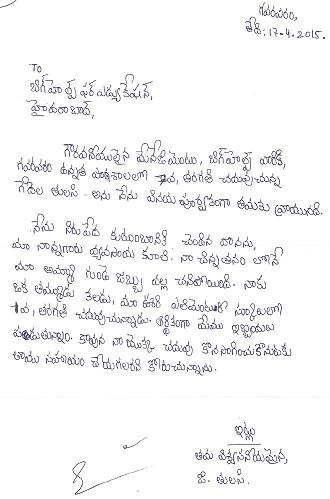 గవరవరం,
తేది:17-4-2015.
To
బిగ్‌హెల్ప్ ఫర్ ఎడ్యుకేషన్,
హైదరాబాద్,
గౌరవనీయులైన మేనేజ్‌మెంటు, బిగ్‌హెల్ప్ వారికి,
గవరవరం ఉన్నత పాఠశాలలో వ, తరగతి చదువుచున్న
గేదెల తులసి - అను నేను వినయ పూర్వకంగా తమకు వ్రాయునది.
నేను నిరుపేద కుటుంబానికి చెందిన దానను,
మా నాన్నగారు వ్యవసాయ కూలీ. నా చిన్నతనం లోనే
మా అమ్మా గుండె జబ్బు వల్ల చనిపోయింది. నాకు
ఒక తమ్ముడు కలడు, మా ఊరి ఎలిమెంటరీ స్కూలులో
వ, తరగతి చదువుచున్నాడు. ఆర్థికంగా మేము ఇబ్బందులు
పడుతున్నాం. కావున నా యొక్క చదువు కొనసాగించుకొనుటకు
తాము సహాయం చేయగలరని కోరుచున్నాను.
ఇట్లు
తమ విశ్వసనీయమైన,
జి. తులసి.